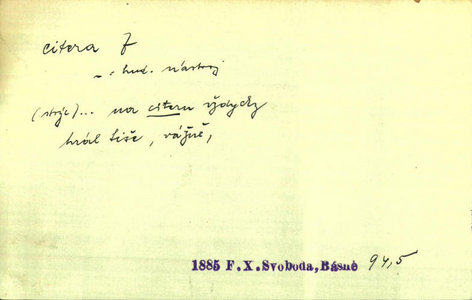 citera F
~ : hud. nástroj
(strýc)... na citeru vždycky
hrál tiše, vážně,
1885 F.X.Svoboda, Básně 94,5